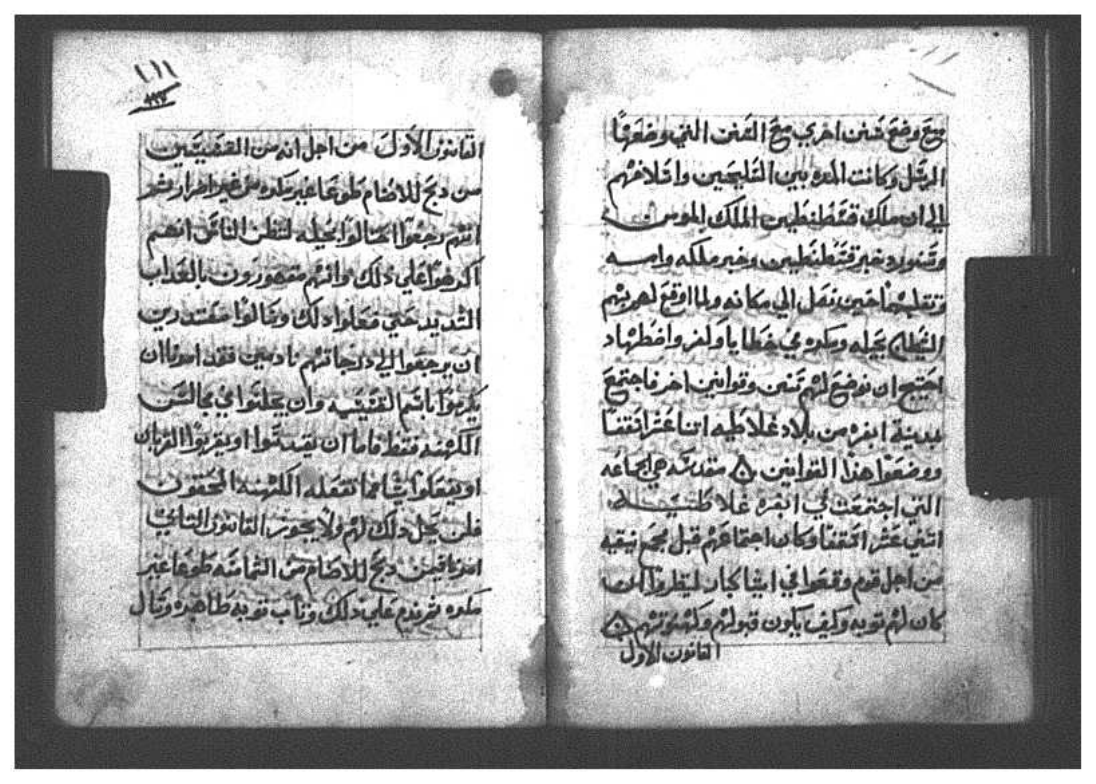 مع وضع سنن اخري مع السنن التي وضعها
الرسل وكانت المده بين التليحين واتلامهم
الي ان ملك قسطنطين الملك المومن
وتنور دخبر قسطنطين وخبر ملكه وامه
وتقلبهما حين نقل الي مكانه ولما اوقع لهم بيتهم
الشيطان بحيله ومكره في خطايا ولغز واضطهاد
احتيج ان نوضع لهم سنن وقوانين اخر فاجتمع
بمدينة انقره من بلاد غلاطيه اثنا عشر اسقفا
ووضعوا هذا القوانين مقدمة هي الجماعه
التي اجتمعت في انقره غلاطية
اثني عشر اسقفا وكان اجتماعهم قبل مجمع نيقيه
من اجل قوم وقعوا في اشيا كبار لينظروا ان
كان لهم توبه وكيف يكون قبولهم
القانون الاول
١١١
القانون الاول من اجل انه من القسيسين
من دبح للاصنام طوعا غير مكره من غير اضرار
انهم رجعوا احتالوا بحيله لتظن الناس انهم
اكرهوا علي ذلك وانهم مقهورون بالعذاب
الشديد حتي فعلوا ذلك وقالوا مقتدرين
ان يرجعوا الي درجاتهم نادمين فقد امرنا ان
يكرموا باسم القسيسيه وان يجلسوا في مجالس
الكهنه فقط فاما ان يقدسوا او يقربوا القربان
او يفعلوا شيا مما تفعله الكهنه المحقون
فلن يحل ذلك لهم ولا يجوز القانون التاني
امرنا فيمن دبح للاصنام من الشمامسه طوعا غير
مكره ثم ندم علي ذلك وتاب توبه طاهره وقال